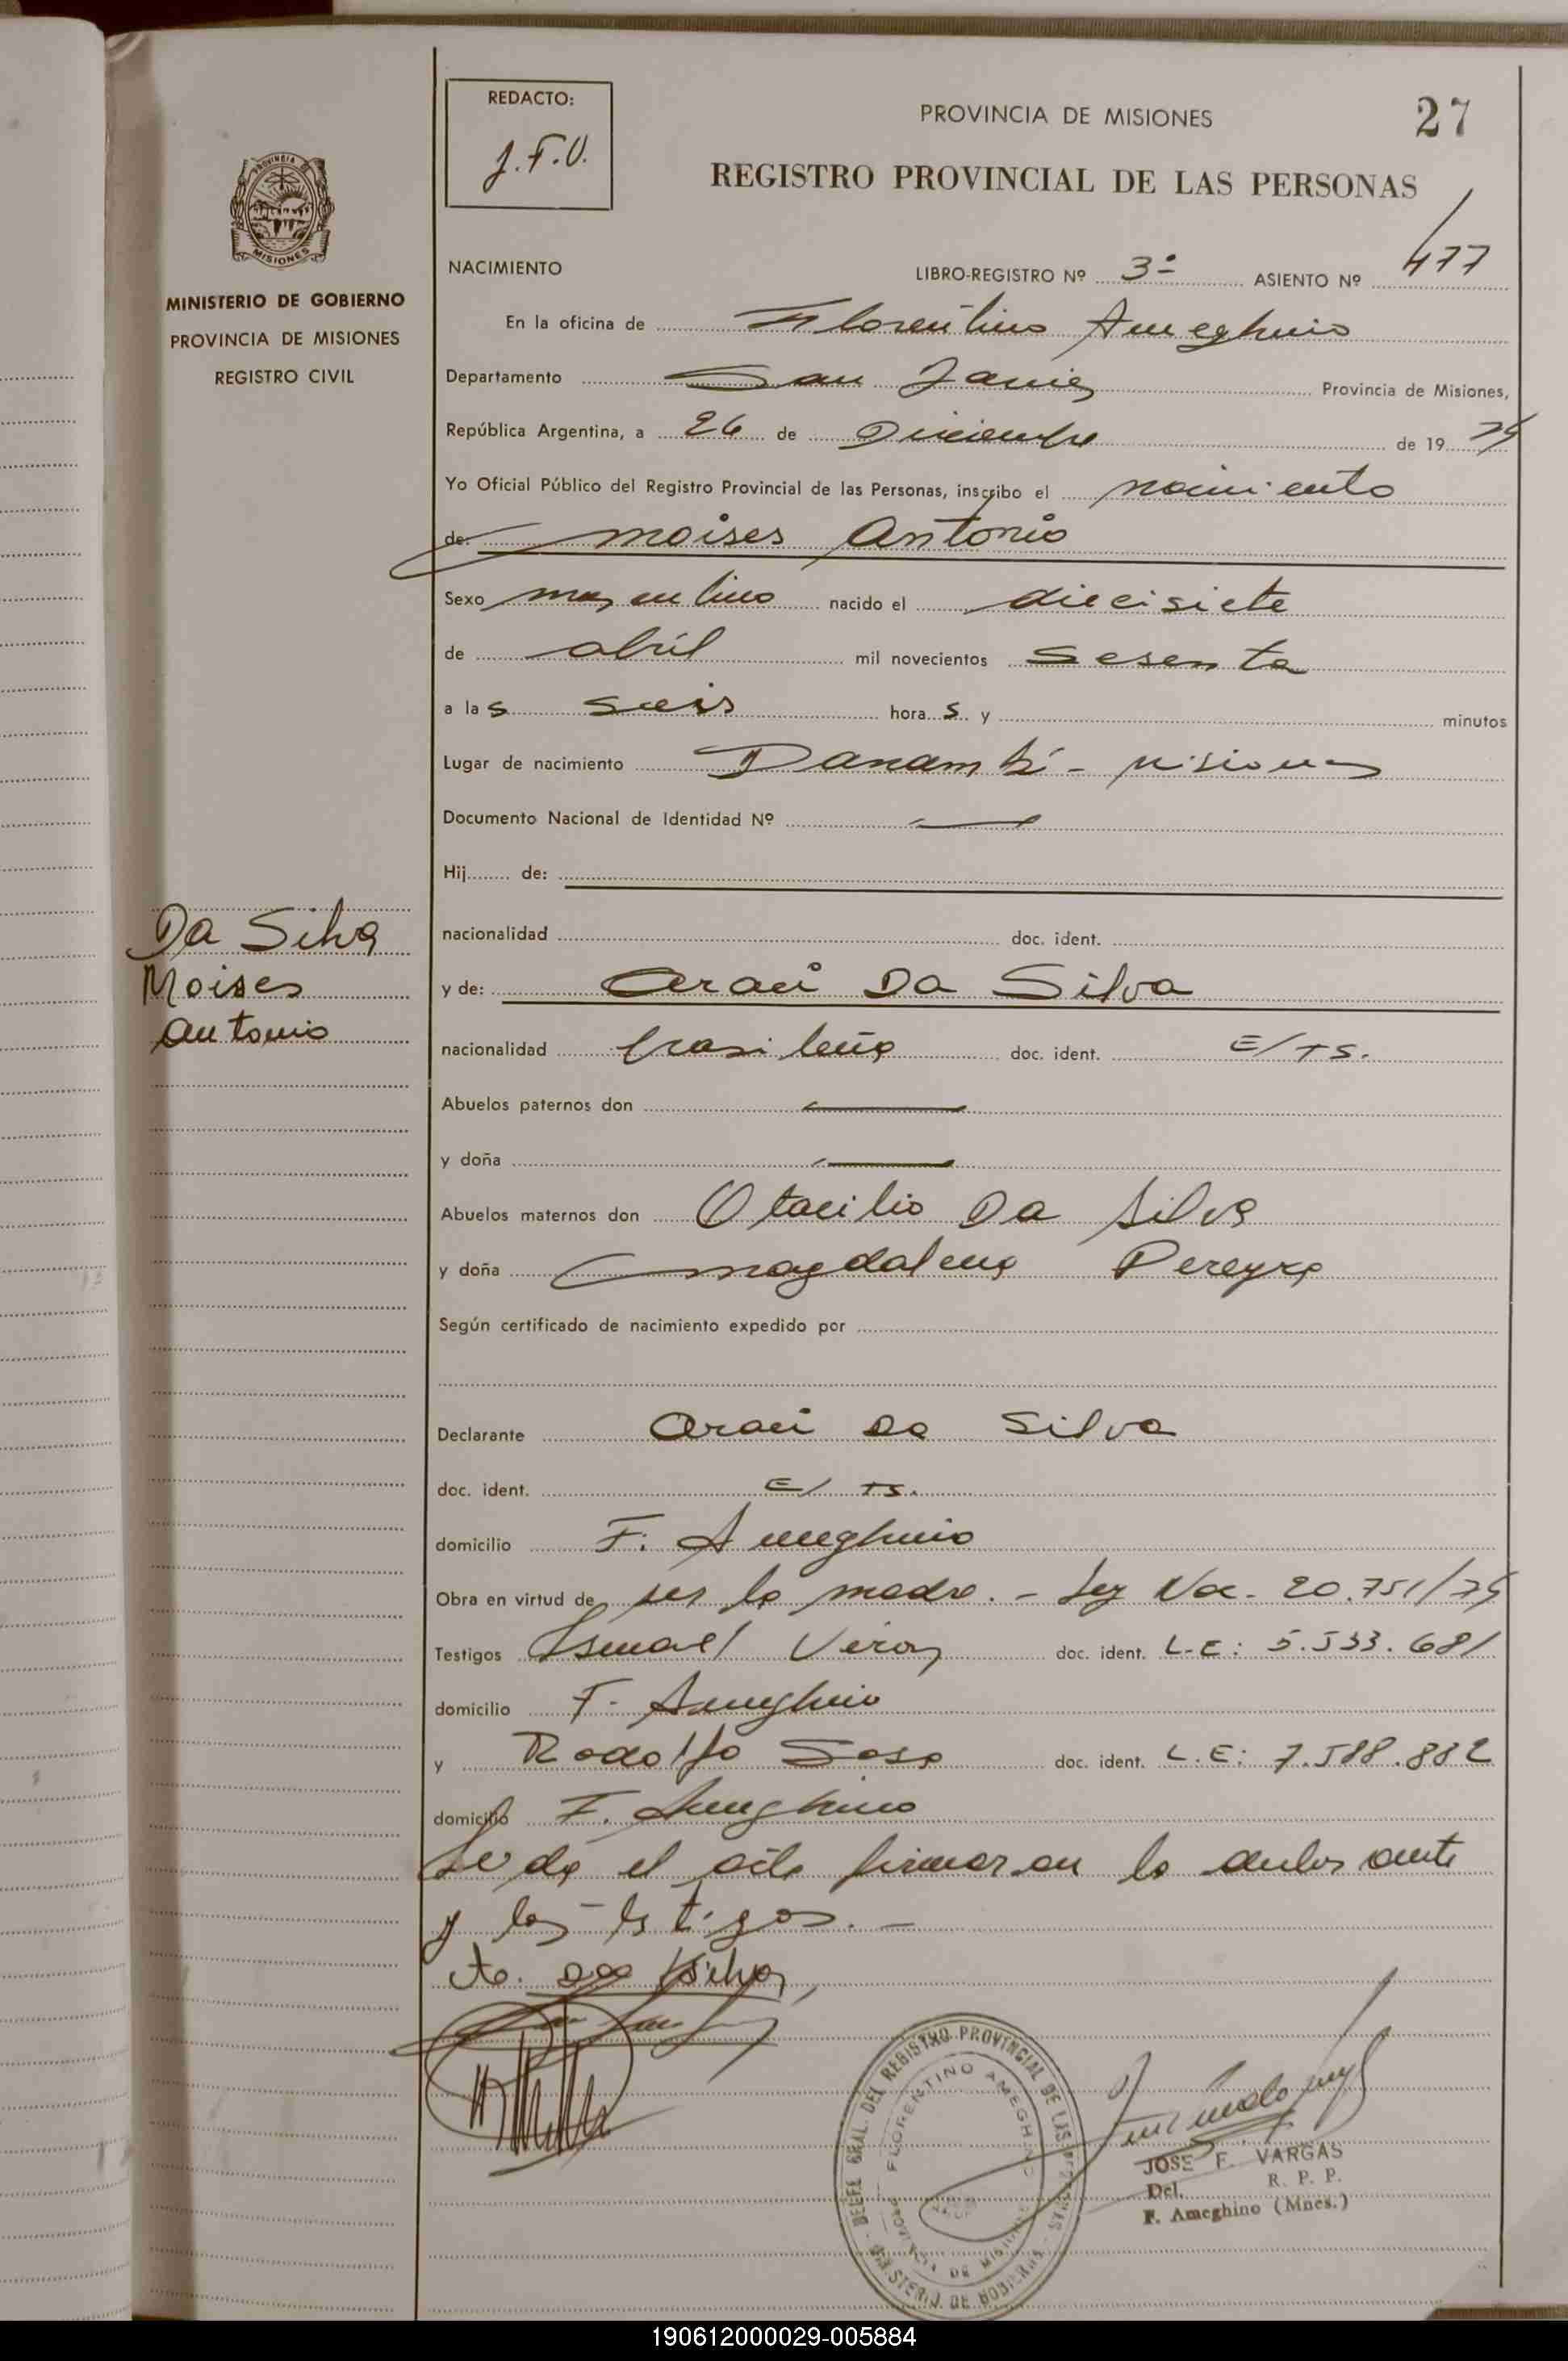 REDACTO:
J.F.V.
PROVINCIA DE MISIONES
27
REGISTRO PROVINCIAL DE LAS PERSONAS
PROVINCIA DE
MISIONES
MINISTERIO DE GOBIERNO
PROVINCIA DE MISIONES
REGISTRO CIVIL
NACIMIENTO LIBRO-REGISTRO Nº 3º ASIENTO Nº 477
En la oficina de Florentino Ameghino
Departamento San Javier Provincia de Misiones,
República Argentina, a 26 de Diciembre de 19
Yo Oficial Público del Registro Provincial de las Personas, inscribo el nacimiento
de: moises Antonio
Sexo masculino nacido el diecisiete
de abril mil novecientos sesenta
a las seis horas y minutos
Lugar de nacimiento Panambí - Misiones
Documento Nacional de Identidad Nº —
Hij de:
nacionalidad doc. ident.
Da Silva
Moises
Antonio
y de: Araci Da Silva
nacionalidad brasileña doc. ident. E/TS.
Abuelos paternos don —
y doña —
Abuelos maternos don Otacilio Da Silva
y doña magdalena Pereyra
Según certificado de nacimiento expedido por
Declarante Araci Da Silva
doc. ident. E/ TS.
domicilio F. Ameghino
Obra en virtud de ser la madre. - Ley Nac. 20.751/74
Testigos Ismael Veron doc. ident. L-E: 5.533.681
domicilio F. Ameghino
y Rodolfo Sosa doc. ident. L.E: 7.588.882
domicilio F. Ameghino
Leida el acta firmaron la declarante
y los testigos. -
A. da Silva,
DELEG. GRAL. DEL REGISTRO PROVINCIAL DE LAS PERSONAS
FLORENTINO AMEGHINO
PROVINCIA DE MISIONES
MINISTERIO DE GOBIERNO
JOSE F. VARGAS
Del. R. P. P.
F. Ameghino (Mnes.)
190612000029-005884